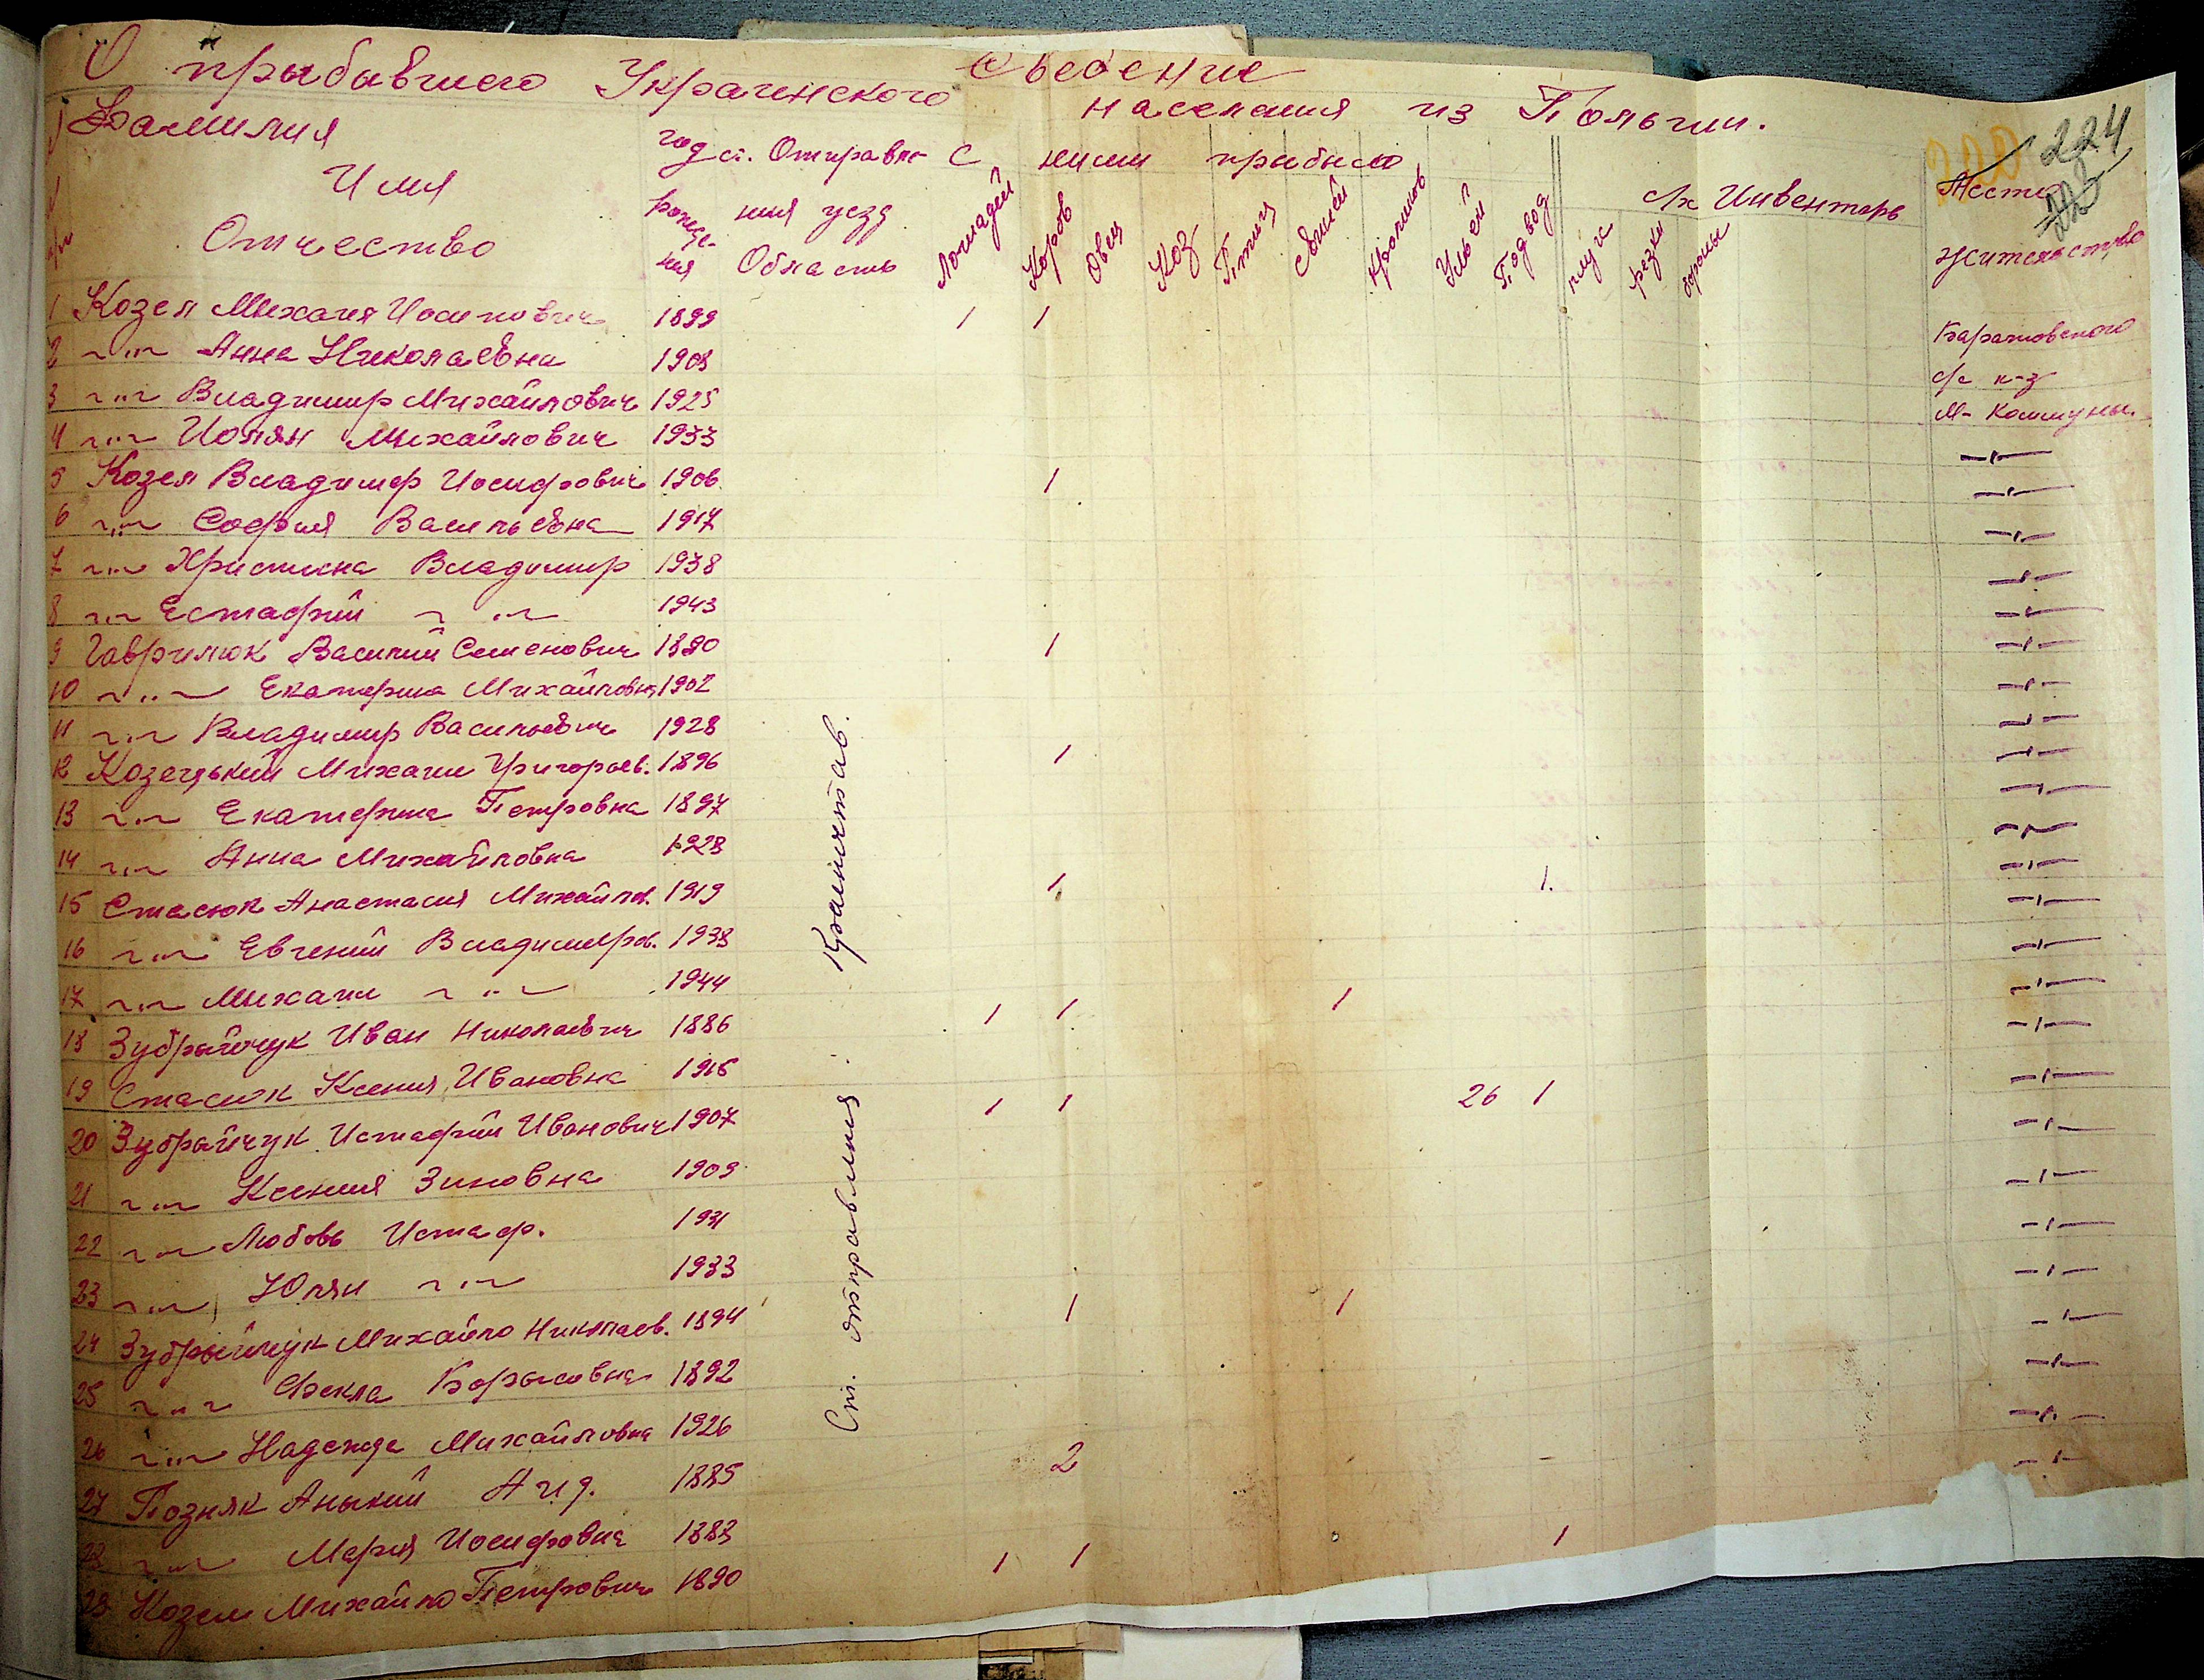 Сведение
О прыбывшего Украинского населения из Польши.
224
Фамилия Имя Отчество
год рожде-ния
ст. Отправле-ния уезд Область
С ними прибыло
Лошадей Коров Овец Коз Птиця Свиней Кроликов Ульей Подвод
с/х Инвентарь
плуг резки бороны
Место жительство
1 Козел Михаил Иосипович 1899 1 1 Баратовского
2 ~"~ Анна Николаевна 1908 с/с к-з
3 ~"~ Владимир Михайлович 1925 М- Коммуны.
4 ~"~ Иолян Михайлович 1933 —"—
5 Козел Владимир Иосифович 1906 1 —"—
6 ~"~ София Васильевна 1917 —"—
7 ~"~ Христина Владимир 1938 —"—
8 ~"~ Естафий ~"~ 1943 —"—
9 Гаврилюк Василий Семенович 1890 1 —"—
10 ~"~ Екатерина Михайловна 1902 —"—
11 ~"~ Владимир Васильевич 1928 —"—
12 Козецький Михаил Григорьев. 1896 1 —"—
13 ~"~ Екатерина Петровна 1897 —"—
14 ~"~ Анна Михайловна 1928 —"—
15 Стасюк Анастасия Михайлов. 1919 1 1 —"—
16 ~"~ Евгений Владимиров. 1938 —"—
17 ~"~ Михаил ~"~ 1944 —"—
18 Зубрыйчук Иван Николаевич 1886 1 1 1 —"—
19 Стасюк Ксения Ивановна 1916 —"—
20 Зубрыйчук Истафий Иванович 1907 1 1 26 1 —"—
21 ~"~ Ксения Зиновна 1909 —"—
22 ~"~ Любовь Истаф. 1931 —"—
23 ~"~ Юлян ~"~ 1933 —"—
24 Зубрыйчук Михайло Николаев. 1894 1 1 —"—
25 ~"~ Фекла Борысовна 1892 —"—
26 ~"~ Надежда Михайловна 1926 —"—
27 Позняк Аныкий 1885 2 - —"—
28 ~"~ Мария Иосифовна 1883
29 Козел Михайло Петрович 1890 1 1 1
Ст. отправления: Краснистав.